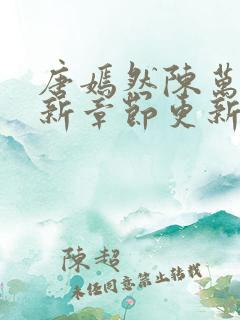 唐嫣然陳萬
新章節更新
陳超
未經同意禁止轉載